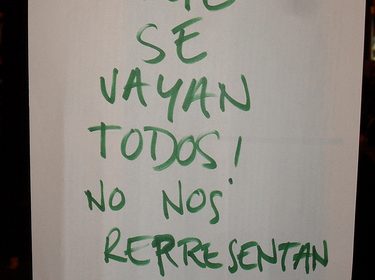 SE
VAYAN
TODOS!
NO NOS
REPRESENTAN